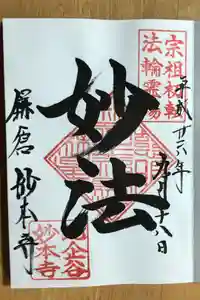 宗祖初転
法輪霊場
平成廿六年
九月十八日
妙法
鎌倉 妙本寺
比企谷
妙本寺